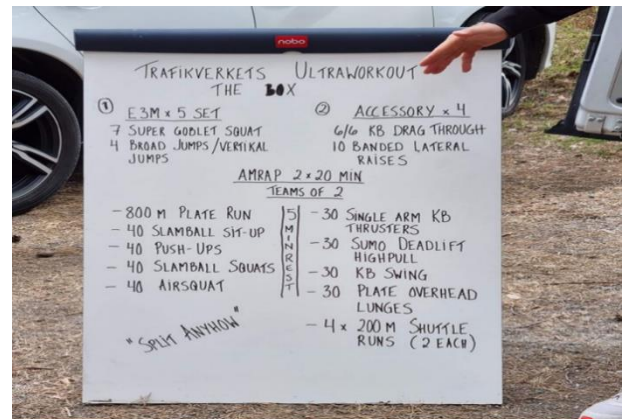 nobo
TRAFIKVERKETS ULTRAWORKOUT
THE BOX
① E3M x 5 SET
7 SUPER GOBLET SQUAT
4 BROAD JUMPS/VERTIKAL
JUMPS
② ACCESSORY x 4
6/6 KB DRAG THROUGH
10 BANDED LATERAL
RAISES
AMRAP 2*20 MIN
TEAMS OF 2
- 800 M PLATE RUN
- 40 SLAMBALL SIT-UP
- 40 PUSH-UPS
- 40 SLAMBALL SQUATS
- 40 AIRSQUAT
"SPLIT ANYHOW"
5 MIN REST
- 30 SINGLE ARM KB
THRUSTERS
- 30 SUMO DEADLIFT
HIGHPULL
- 30 KB SWING
- 30 PLATE OVERHEAD
LUNGES
- 4 x 200 M SHUTTLE
RUNS (2 EACH)